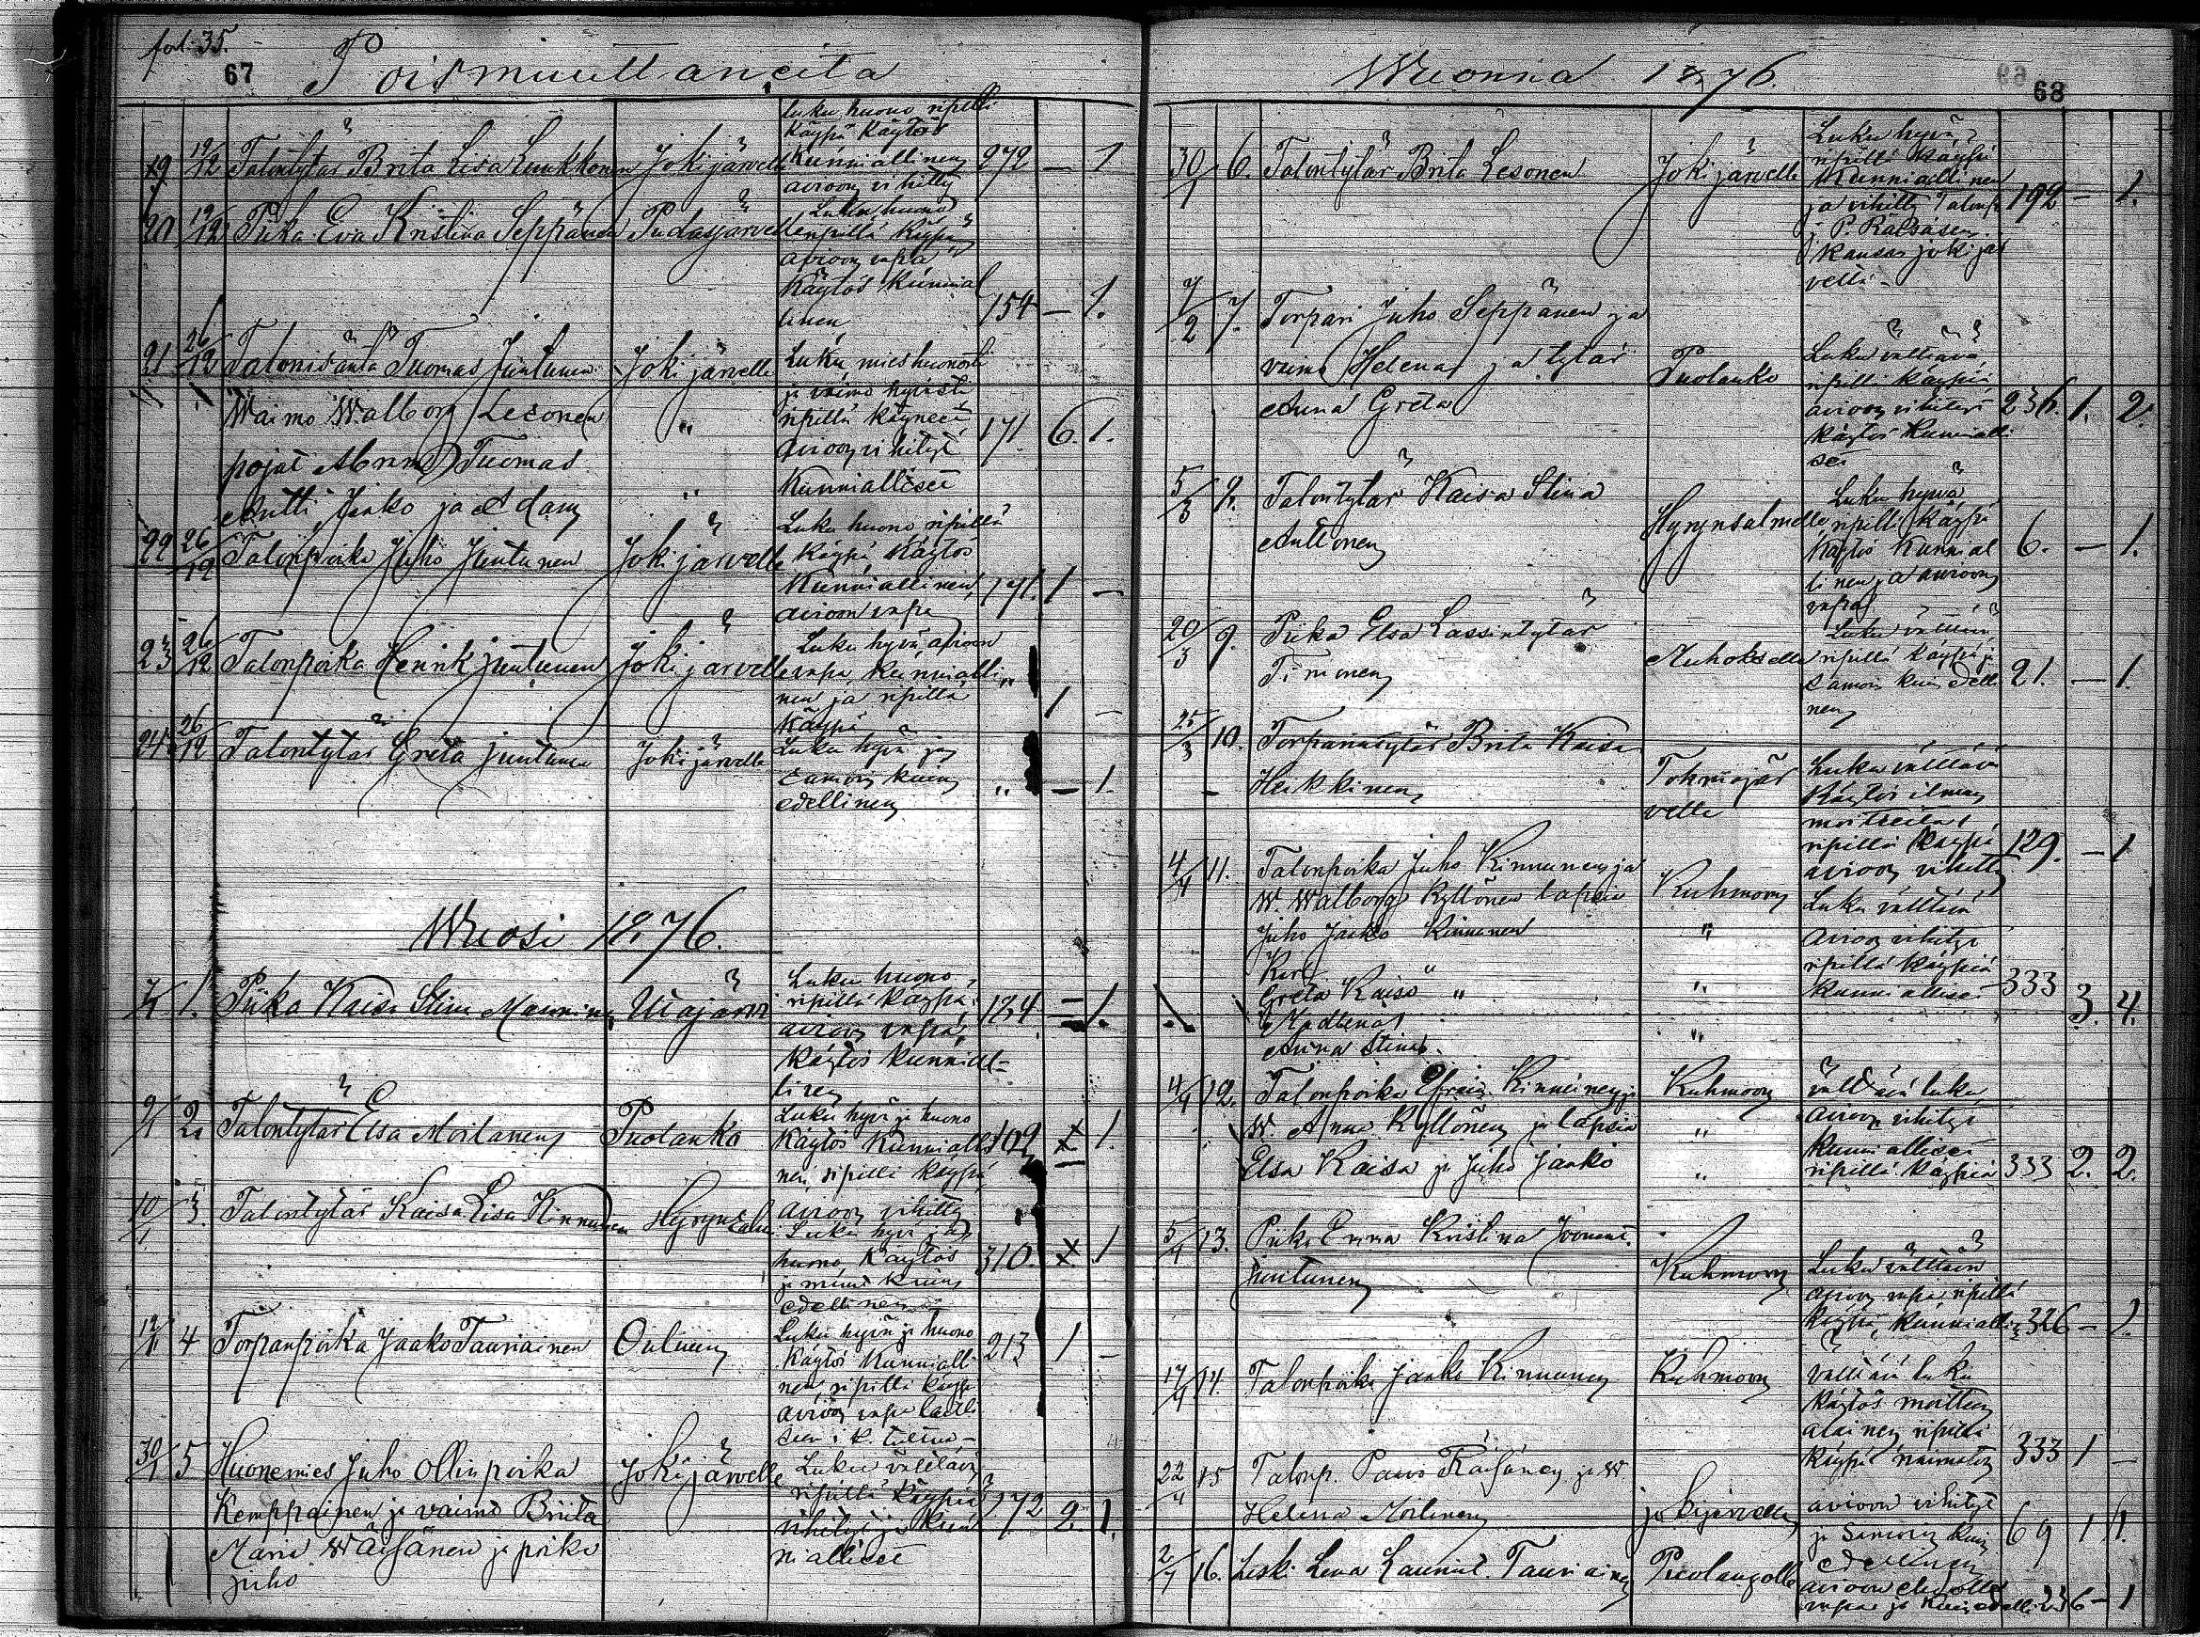 fol. 35.
67
Poismuuttaneita
19 12/12 Talontytär Brita Lisa Luukkonen Jokijärvelle 272 — 1
luku huono ripillä
käypä käytös
kunniallinen
avioon vihitty
20 12/12 Piika Eva Kristina Seppänen Pudasjärvelle
Luku huono
ripillä käypä
avioon vapa
käytös kunnial
linen 154 — 1.
21 26/12 Talonisäntä Tuomas Juntunen Jokijärvelle
Waimo Walborg Lesonen " 171 6. 1.
pojat Abram Tuomas
Antti, Jaako ja Adam "
Luku mies huonosti
ja vaimo hyvästi
ripillä käyneet
avioon vihityt
kunnialliset
22 26/12 Talonpoika Juho Juntunen Jokijärvelle
Luku huono ripillä
käypä, käytös
kunniallinen, 171. 1 —
avioon vapa
23 26/12 Talonpoika Henrik Juntunen Jokijärvelle
Luku hyvä avioon
vapa, kunnialli "
nen ja ripillä 1 —
käypä
24 26/12 Talontytär Greta Juntunen Jokijärvelle
Luku hyvä ja
samoin kuin
edellinen " — 1.
Wuosi 1876.
1. Piika Kaisa Stina Manninen Utajärvi 124 — 1.
Luku huono,
ripillä käypä,
avioon vapa,
käytös kunnial-
linen
2. Talontytär Elsa Moilanen Puolanko 109 x 1.
Luku hyvä ja huono
käytös kunnialli
nen, ripillä käypä
avioon vihitty
10/1 3. Talontytär Kaisa Lisa Kinnunen Hyrynsalmi 310. x. 1
Luku hyvä ja
huono, käytös
edellinen
12/1 4 Torpanpoika Jaako Tauriainen Ouluun 213 1 —
Luku hyvä ja huono
käytös kunnialli
nen, ripillä käypä
avioon vapa
30/1 5 Huonemies Juho Ollinpoika Jokijärvelle
Kemppainen ja vaimo Briita 172 2. 1.
Maria Wäisänen ja poika
Juho
Luku välttävä
ripillä käypiä
vihityt ja kun
nialliset
Wuonna 1876.
68
30/1 6. Talontytär Brita Lesonen Jokijärvelle 192 — 1.
Luku hyvä,
ripillä käypä
kunniallinen
ja vihitty Talonp.
P. Räisäsen
kanssa jokijär
vellä -
7/2 7. Torpari Juho Seppänen ja
vaimo Helena ja tytär Puolanko
Anna Greta 236. 1. 2.
Luku välttävä
ripillä käypiä,
avioon vihityt
käytös kunnialli
set
5/3 8. Talontytär Kaisa Stina
Anttonen Hyrynsalmelle 6. — 1.
Luku hyvä
ripillä käypä
käytös kunnial
linen ja avioon
vapa
20/3 9. Piika Elsa Lassintytär
Timonen Muhokselle 21. — 1.
Luku välttävä,
ripillä käypä ja
samoin kuin edelli
nen
25/3 10. Torparintytär Brita Kaisa
Heikkinen Tohmajär
velle 129. — 1
Luku välttävä
käytös ilman
moitteita
ripillä käypä
avioon vihitty
4/4 11. Talonpoika Juho Kinnunen ja
W. Walborg Kyllönen lapsia Kuhmoon
Juho Jaako Kinnunen "
Karl
Greta Kaisa " " 333 3. 4.
Anna Stina "
Luku välttävä
avioon vihityt
ripillä käypiä
kunnialliset
4/4 12. Talonpoika Efraim Kinnunen ja Kuhmoon
W. Anna Kyllönen ja lapsia "
Elsa Kaisa ja Juho Jaako " 333 2. 2.
välttävä luku,
avioon vihityt
kunnialliset
ripillä käypiä
5/4 13. Piika Emma Kristina
Juntunen Kuhmoon 326 — 1.
Luku välttävä
avioon vapa ripillä
käypä, kunnialli
17/4 14. Talonpoika Jaako Kinnunen Kuhmoon 333 1 —
välttävä luku
käytös moitteen
alainen ripillä
käypä naimaton
22/4 15 Talonp. Paavo Räisänen ja W
Helena Moilanen Jokijärvelle 69 1 1.
avioon vihityt
ja samoin kuin
edellinen
16. Leski Lena Tauriainen Puolangolle 236 — 1
avioon
vapa ja kuin edelli